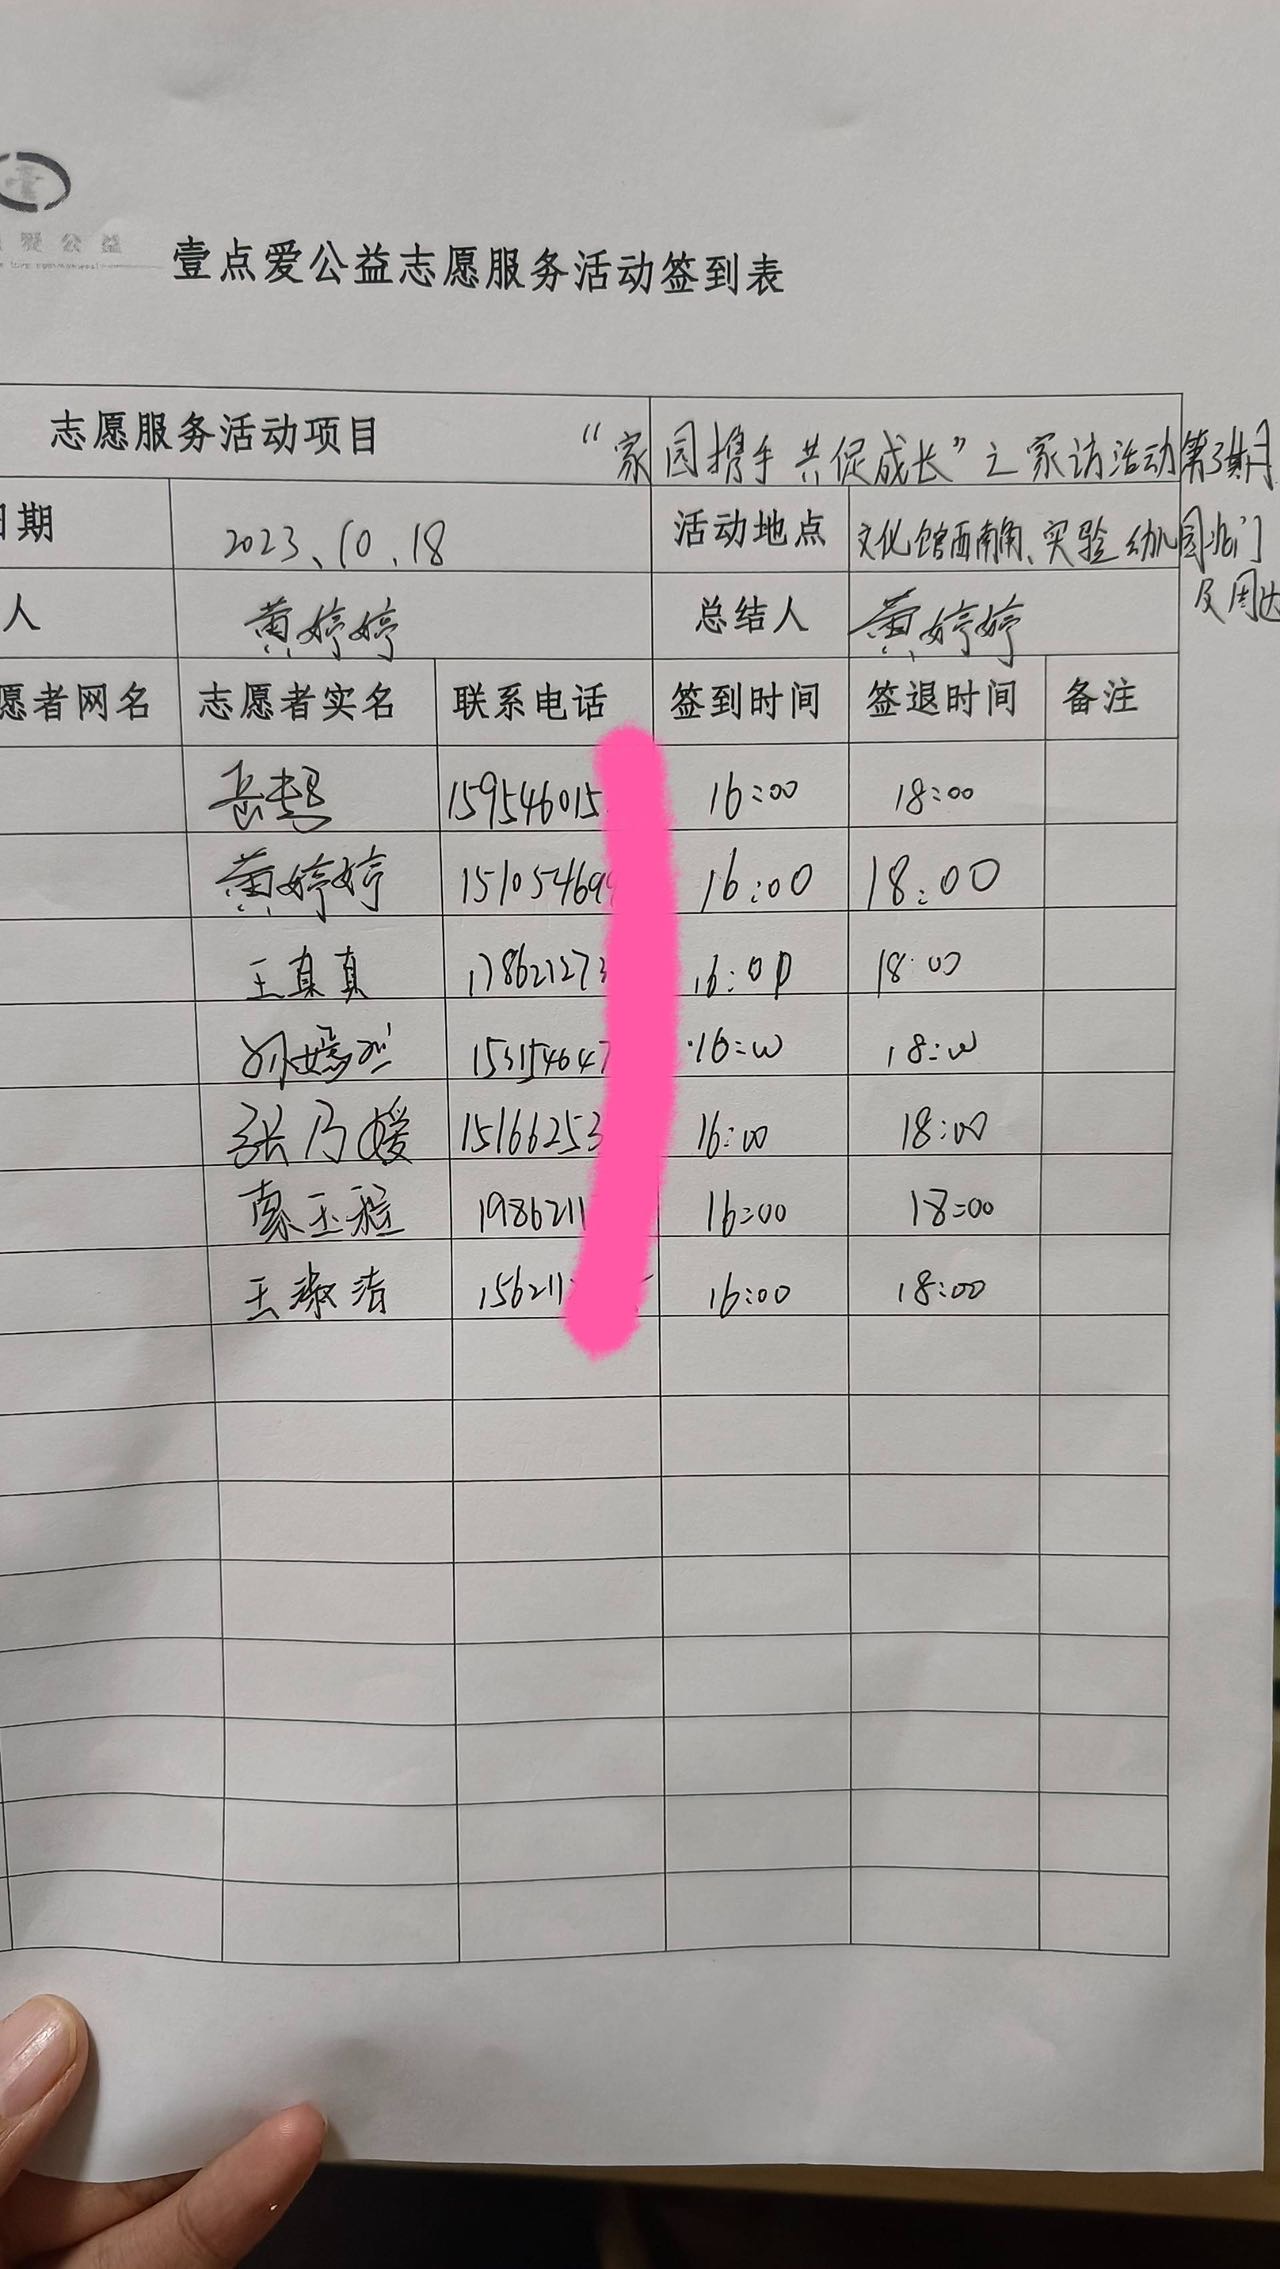 爱公益
壹点爱公益志愿服务活动签到表
志愿服务活动项目 “家园携手 共促成长”之家访活动第3期
日期 2023、10.18 活动地点 文化馆西南角、实验幼儿园北门
及周边
人 黄婷婷 总结人 黄婷婷
愿者网名 志愿者实名 联系电话 签到时间 签退时间 备注
岳 159546015 16:00 18:00
黄婷婷 151054699 16:00 18:00
王真真 17862127 16:00 18:00
孙嫣 15315464 16:00 18:00
张乃媛 15166253 16:00 18:00
玉程 1986211 16:00 18:00
王淑洁 156211 16:00 18:00